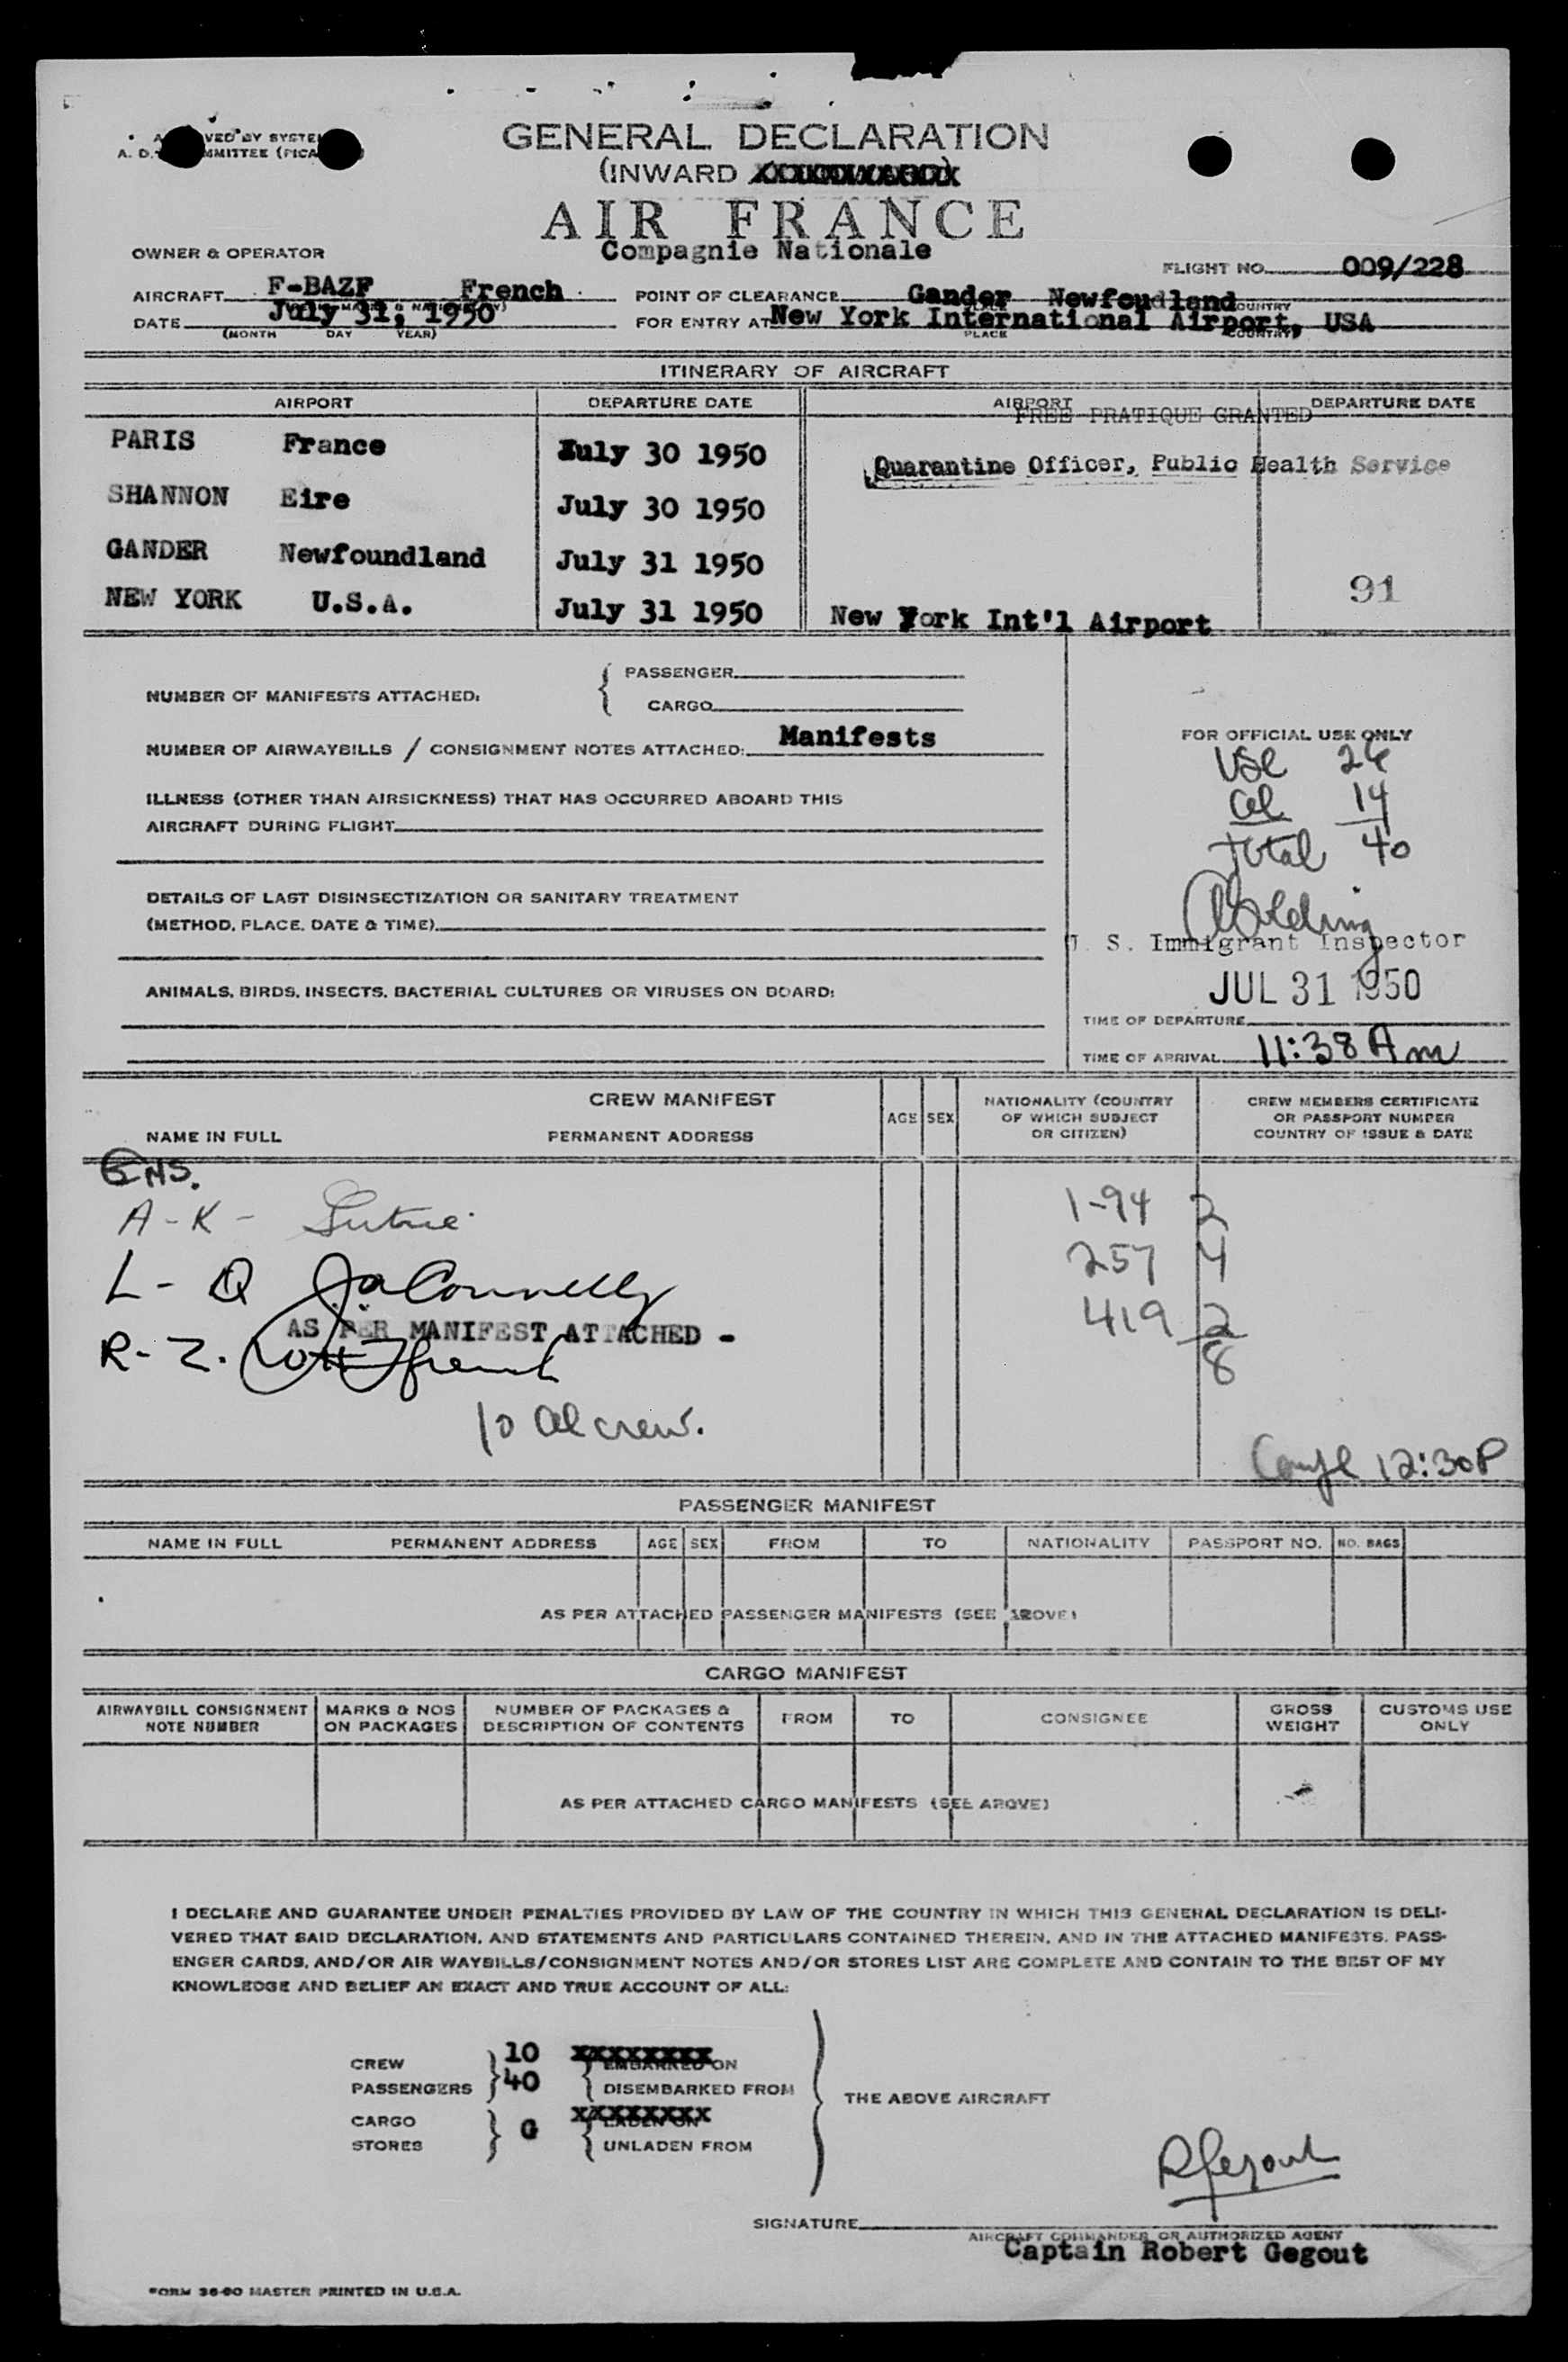 GENERAL DECLARATION
(INWARD
AIR FRANCE
Compagnie Nationale
OWNER & OPERATOR
FLIGHT NO. 009/228
AIRCRAFT F-BAZF French
POINT OF CLEARANCE Gander Newfoudland
DATE July 31, 1950
(MONTH DAY YEAR)
FOR ENTRY AT New York International Airport, USA
PLACE COUNTRY
ITINERARY OF AIRCRAFT
AIRPORT DEPARTURE DATE AIRPORT DEPARTURE DATE
FREE PRATIQUE GRANTED
PARIS France July 30 1950
Quarantine Officer, Public Health Service
SHANNON Eire July 30 1950
GANDER Newfoundland July 31 1950
91
NEW YORK U.S.A. July 31 1950 New York Int'l Airport
NUMBER OF MANIFESTS ATTACHED:
PASSENGER
CARGO
NUMBER OF AIRWAYBILLS / CONSIGNMENT NOTES ATTACHED: Manifests
ILLNESS (OTHER THAN AIRSICKNESS) THAT HAS OCCURRED ABOARD THIS
AIRCRAFT DURING FLIGHT
DETAILS OF LAST DISINSECTIZATION OR SANITARY TREATMENT
(METHOD, PLACE, DATE & TIME)
ANIMALS, BIRDS, INSECTS, BACTERIAL CULTURES OR VIRUSES ON BOARD:
FOR OFFICIAL USE ONLY
USC 26
al 14
total 40
U. S. Immigrant Inspector
JUL 31 1950
TIME OF DEPARTURE
TIME OF ARRIVAL 11:38 Am
CREW MANIFEST
NAME IN FULL PERMANENT ADDRESS
AGE SEX
NATIONALITY (COUNTRY
OF WHICH SUBJECT
OR CITIZEN)
CREW MEMBERS CERTIFICATE
OR PASSPORT NUMBER
COUNTRY OF ISSUE & DATE
A-K-
1-94 2
L-Q
257 4
AS PER MANIFEST ATTACHED -
419 2
R-Z.
8
10 al crew.
12:30P
PASSENGER MANIFEST
NAME IN FULL PERMANENT ADDRESS AGE SEX FROM TO NATIONALITY PASSPORT NO. NO. BAGS
AS PER ATTACHED PASSENGER MANIFESTS (SEE ABOVE)
CARGO MANIFEST
AIRWAYBILL CONSIGNMENT
NOTE NUMBER
MARKS & NOS
ON PACKAGES
NUMBER OF PACKAGES &
DESCRIPTION OF CONTENTS
FROM TO CONSIGNEE
GROSS
WEIGHT
CUSTOMS USE
ONLY
AS PER ATTACHED CARGO MANIFESTS (SEE ABOVE)
I DECLARE AND GUARANTEE UNDER PENALTIES PROVIDED BY LAW OF THE COUNTRY IN WHICH THIS GENERAL DECLARATION IS DELI-
VERED THAT SAID DECLARATION, AND STATEMENTS AND PARTICULARS CONTAINED THEREIN, AND IN THE ATTACHED MANIFESTS, PASS-
ENGER CARDS, AND/OR AIR WAYBILLS/CONSIGNMENT NOTES AND/OR STORES LIST ARE COMPLETE AND CONTAIN TO THE BEST OF MY
KNOWLEDGE AND BELIEF AN EXACT AND TRUE ACCOUNT OF ALL:
CREW 10 EMBARKED ON
PASSENGERS 40 DISEMBARKED FROM
THE ABOVE AIRCRAFT
CARGO 0 LADEN ON
STORES UNLADEN FROM
RGegout
SIGNATURE
AIRCRAFT COMMANDER OR AUTHORIZED AGENT
Captain Robert Gegout
FORM 36-60 MASTER PRINTED IN U.S.A.